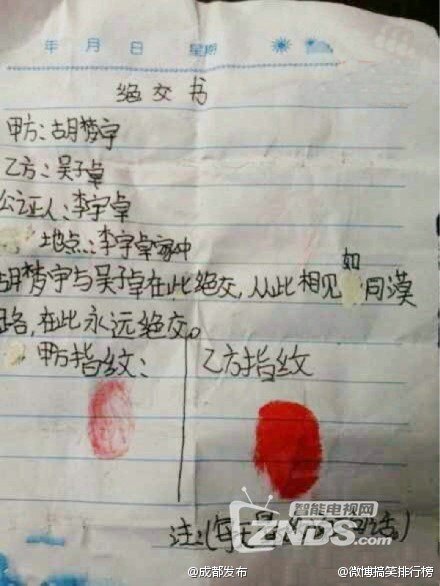 年 月 日 星期
绝交书
甲方:胡梦宇
乙方:吴子卓
公证人:李宇卓
地点:李宇卓家中
胡梦宇与吴子卓在此绝交,从此相见如同漠
路,在此永远绝交。
甲方指纹: 乙方指纹
注:(每
智能电视网
ZNDS.com
@成都发布 @微博搞笑排行榜